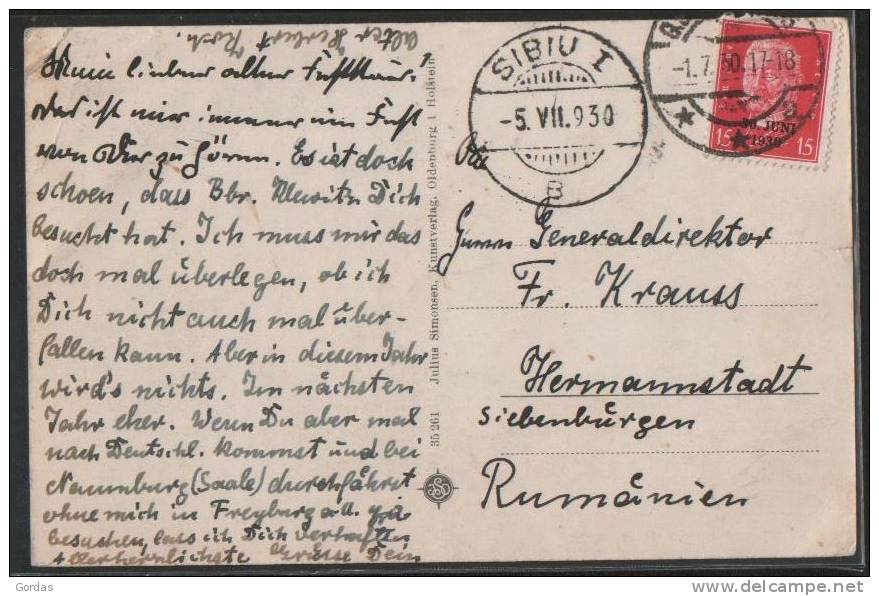 Mein lieber alter
oder ist mir immer um
von Dir zu hören. Es ist doch
schoen, dass Bbr. Dich
besucht hat. Ich muss mir das
doch mal überlegen, ob ich
Dich nicht auch mal über-
fallen kann. Aber in diesem Jahr
wird's nichts. Im nächsten
Jahr eher. Wenn Du aber mal
nach Deutschl. kommst und bei
Naumburg (Saale) durchfährst
ohne mich in Freyburg a.U. zu
besuchen, lass ich Dich verhaften
Allerherzlichste Grüsse Dein
alter Herbert Koch.
35261 Julius Simonsen, Kunstverlag, Oldenburg i. Holstein
SIBIU I
-5. VII. 930
B
-1.7.30.17-18
a
30. JUNI
1930
15 15
An
Herrn Generaldirektor
Fr. Krauss
Hermannstadt
Siebenbürgen
Rumänien
Gordas
delcampe.net